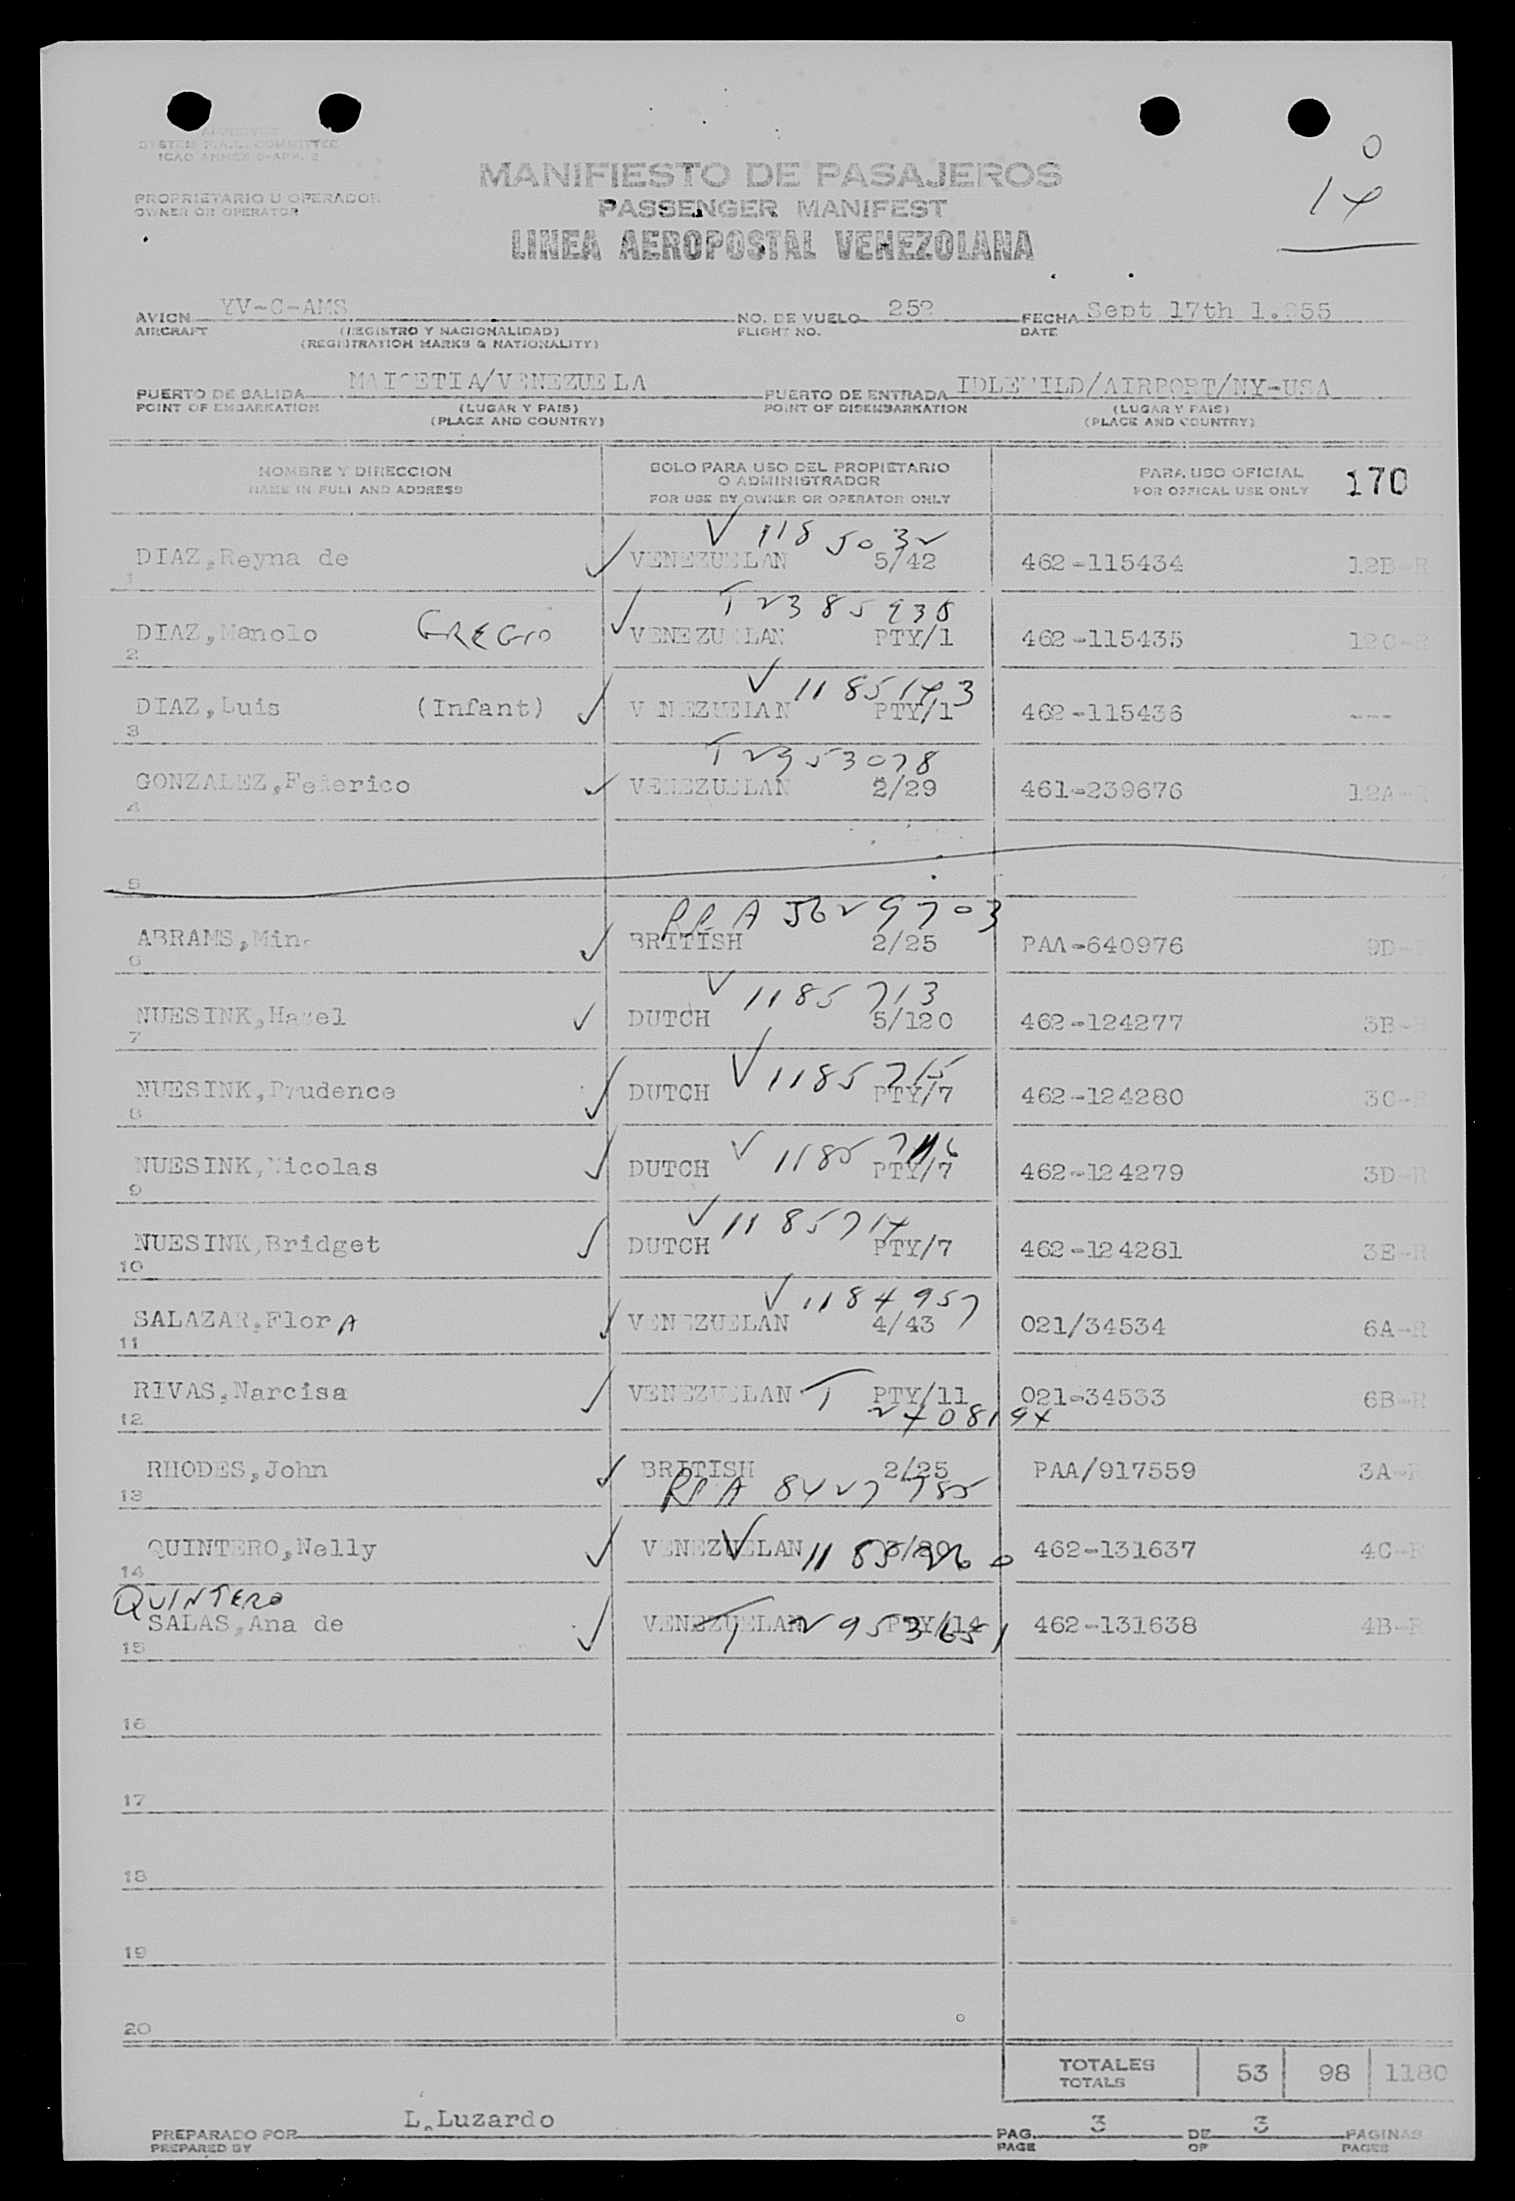 0
SYSTEM F.A.L. COMMITTEE
ICAO ANNEX 9-APP. 2
MANIFIESTO DE PASAJEROS
14
PROPRIETARIO U OPERADOR
OWNER OR OPERATOR
PASSENGER MANIFEST
LINEA AEROPOSTAL VENEZOLANA
AVION YV-C-AMS NO. DE VUELO 252 FECHA Sept 17th 1.955
AIRCRAFT (REGISTRO Y NACIONALIDAD) FLIGHT NO. DATE
(REGISTRATION MARKS & NATIONALITY)
PUERTO DE SALIDA MAIQETIA/VENEZUELA PUERTO DE ENTRADA IDLEWILD/AIRPORT/NY-USA
POINT OF EMBARKATION (LUGAR Y PAIS) POINT OF DISEMBARKATION (LUGAR Y PAIS)
(PLACE AND COUNTRY) (PLACE AND COUNTRY)
NOMBRE Y DIRECCION SOLO PARA USO DEL PROPIETARIO PARA USO OFICIAL 170
O ADMINISTRADOR
NAME IN FULL AND ADDRESS FOR USE BY OWNER OR OPERATOR ONLY FOR OFFICAL USE ONLY
V 1185032
DIAZ,Reyna de VENEZUELAN 5/42 462-115434 12B-R
1
T 2385938
DIAZ,Manolo GREGIO VENEZUELAN PTY/1 462-115435 12C-R
2
V 1185143
DIAZ,Luis (Infant) VENEZUELAN PTY/1 462-115436 ---
3
T 2953078
GONZALEZ,Federico VENEZUELAN 2/29 461-239676 12A-R
4
5
ABRAMS, BRITISH 2/25 PAA-640976 9D-R
6
V 1185713
NUESINK,Hazel DUTCH 5/120 462-124277 3B-R
7
V 1185715
NUESINK,Prudence DUTCH PTY/7 462-124280 3C-R
8
V 1185716
NUESINK,Nicolas DUTCH PTY/7 462-124279 3D-R
9
V 1185714
NUESINK,Bridget DUTCH PTY/7 462-124281 3E-R
10
V 1184957
SALAZAR,FlorA VENEZUELAN 4/43 021/34534 6A-R
11
RIVAS,Narcisa VENEZUELAN T PTY/11 021-34533 6B-R
12 2408194
RHODES,John BRITISH 2/25 PAA/917559 3A-R
13
QUINTERO,Nelly VENEZUELAN 462-131637 4C-R
14
QUINTERO
SALAS,Ana de VENEZUELAN PTY/14 462-131638 4B-R
15
16
17
18
19
20
TOTALES 53 98 1180
TOTALS
PREPARADO POR L.Luzardo PAG. 3 DE 3 PAGINAS
PREPARED BY PAGE OF PAGES